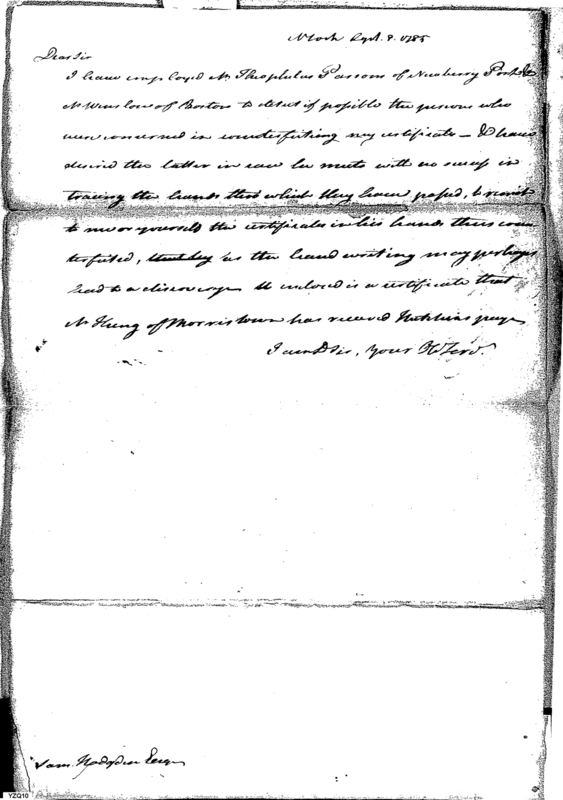 N York Sept. 8. 1785
Dear Sir
I have employed Mr Theophilus Parsons of Newberry Port &
Mr Winslow of Boston to detect if possible the persons who
were concerned in counterfeiting my certificates – & have
desired the latter in case he meets with no success in
tracing the hands thro which they have passed, to remit
to me or yourself the certificates in his hands thus coun
terfeited, as the hand writing may perhaps
lead to a discovery. inclosed is a certificate that
Mr King of Morristown has received Hutchins pay
I am D Sir, your H Serv.
Sam. Hodgdon Esqr
YZQ10